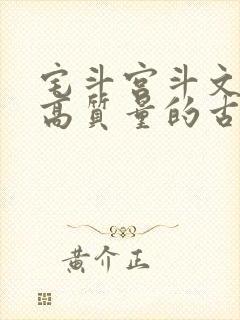 宅斗宫斗文
高质量的古
黄介正